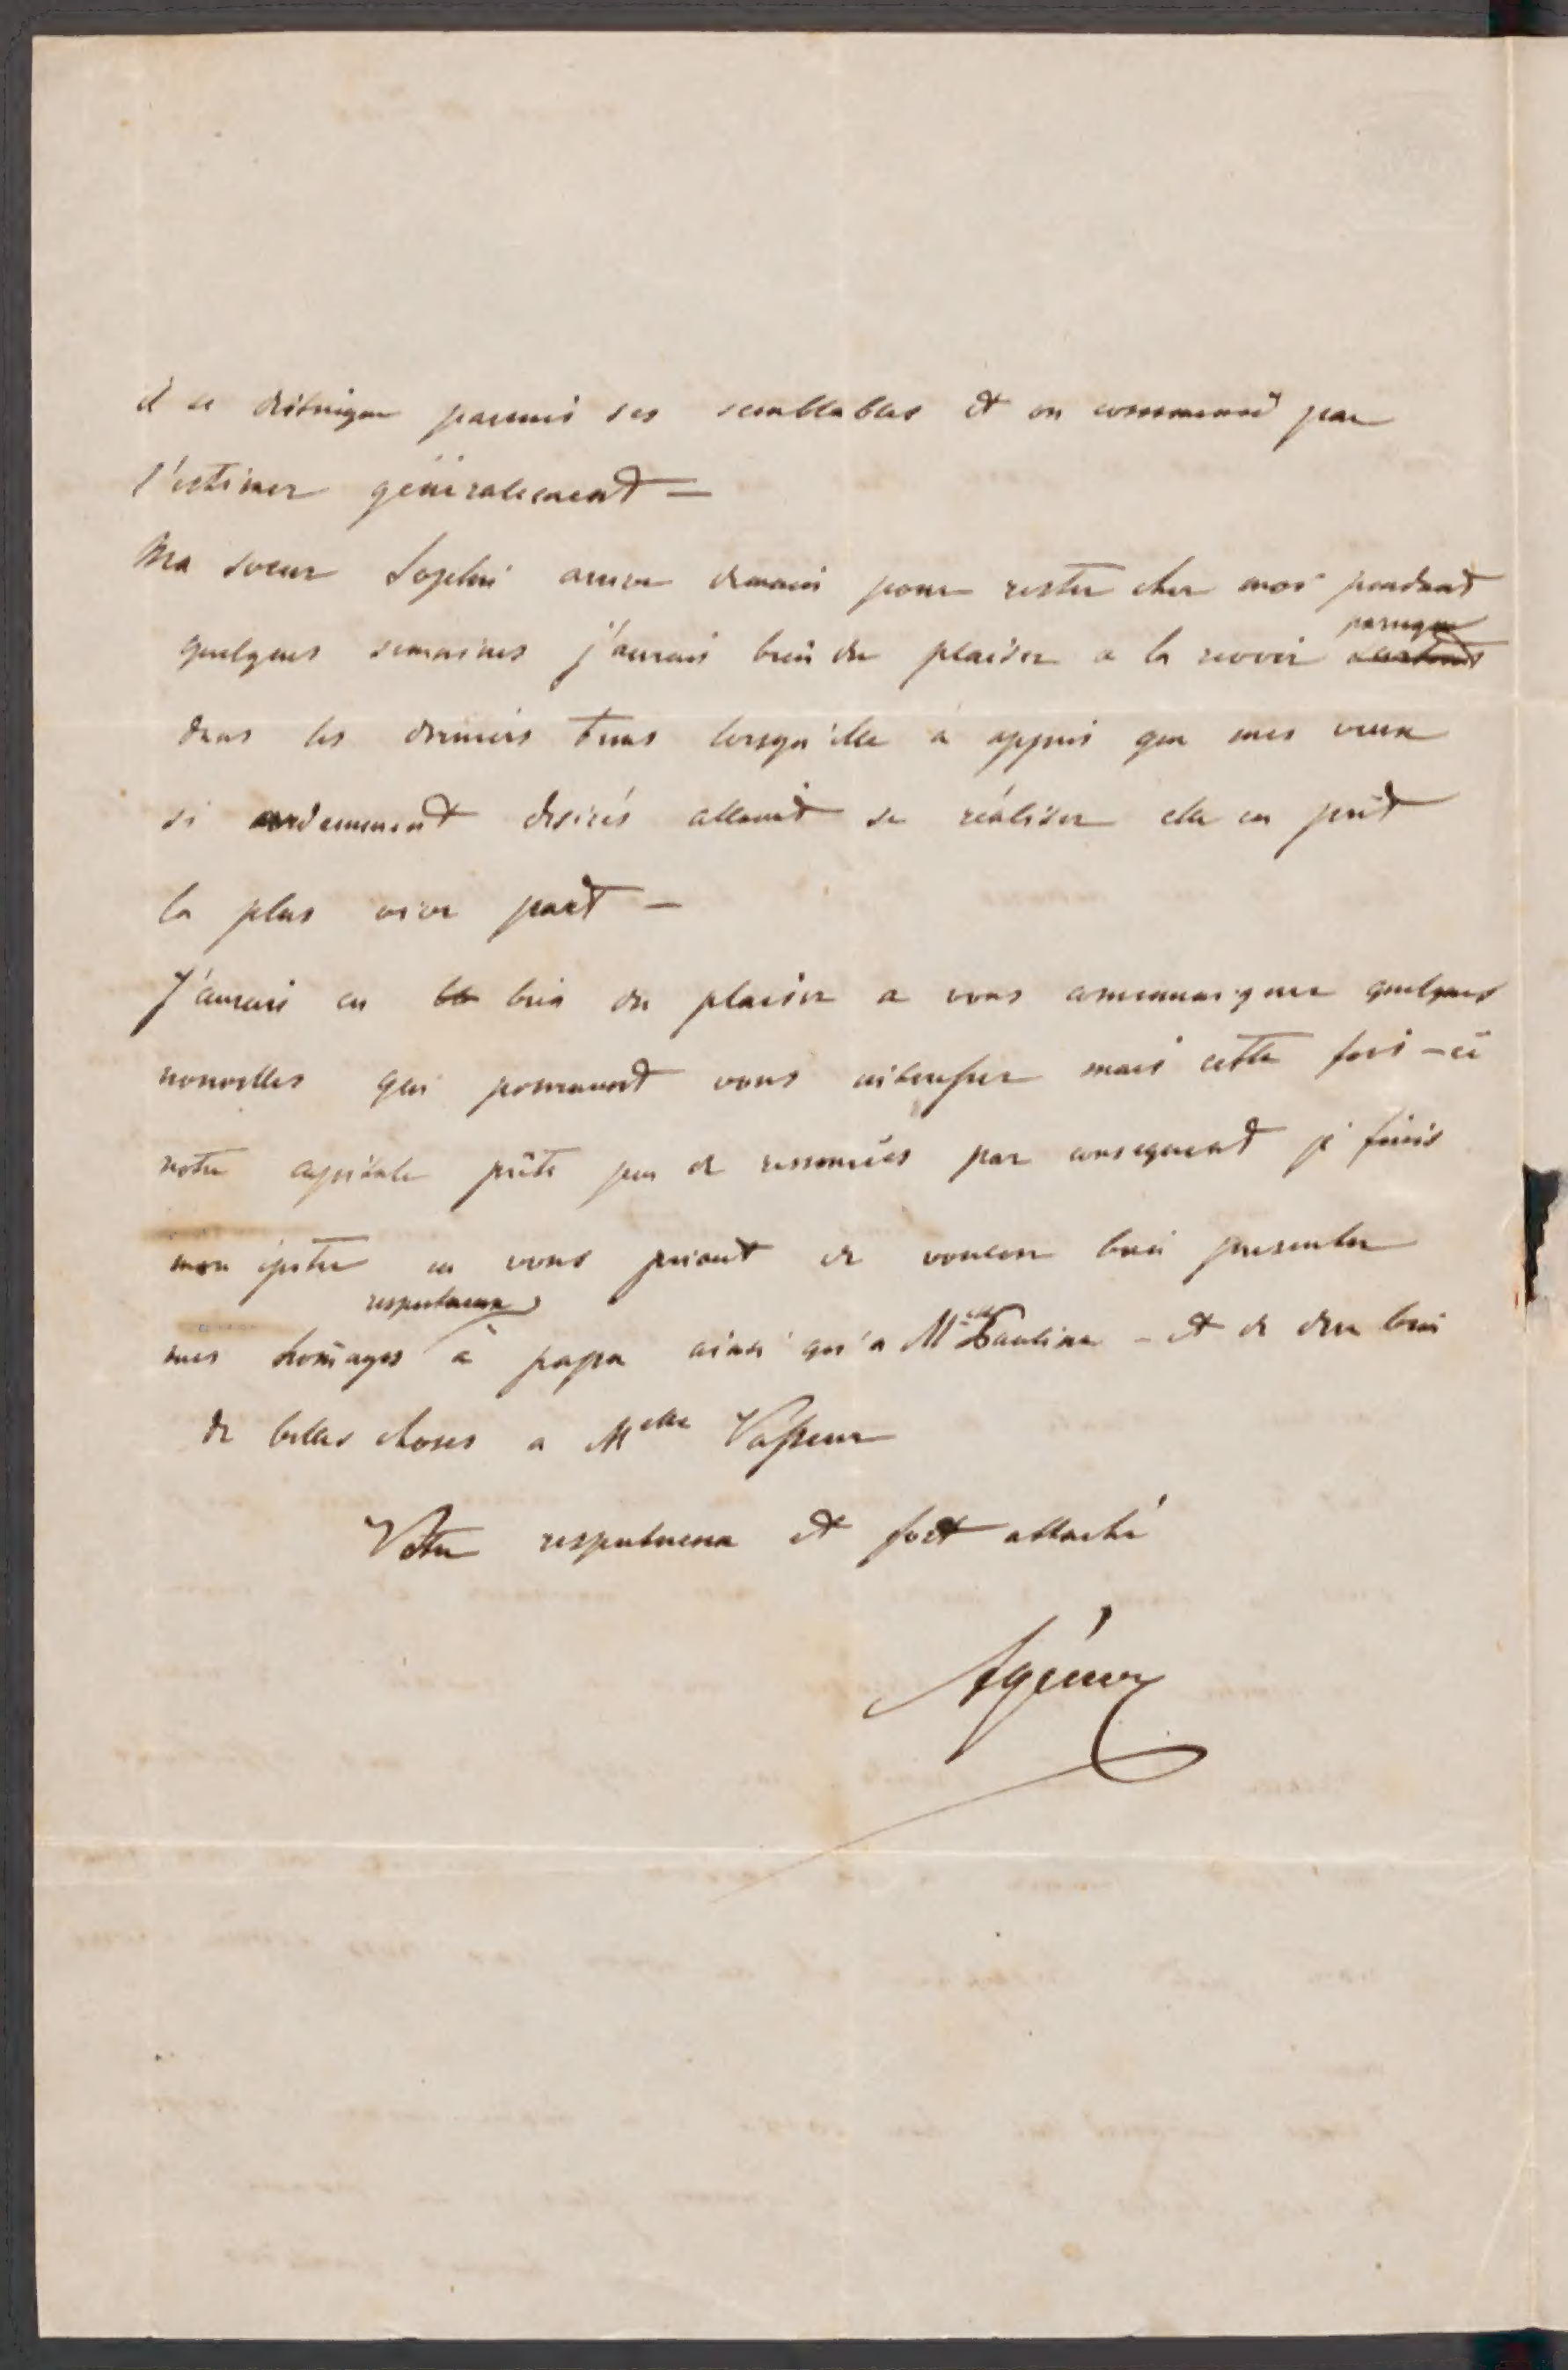 il se distingue parmis ses semblables et on commence par
l'estimer généralement —
Ma soeur Sophie arrive demain pour rester chez moi pendant
quelques semaines j'aurais bien du plaisir a la revoir puisque
dans les derniers tems lorsqu'elle a appris que mes vœux
si ardemment desirés allaient se réaliser elle en prit
la plus vive part —
J'aurais eu bien du plaisir a vous communiquer quelques
nouvelles qui pourraient vous intéresser mais cette fois-ci
notre capitale prête peu de ressources par consequent je finis
mon epitre en vous priant de vouloir bien presenter
mes homages respectueux à papa ainsi qu'a Melle Pauline - et de dire bien
de belles choses a Melle Vasseur
Votre respectueux et fort attaché
Agénor